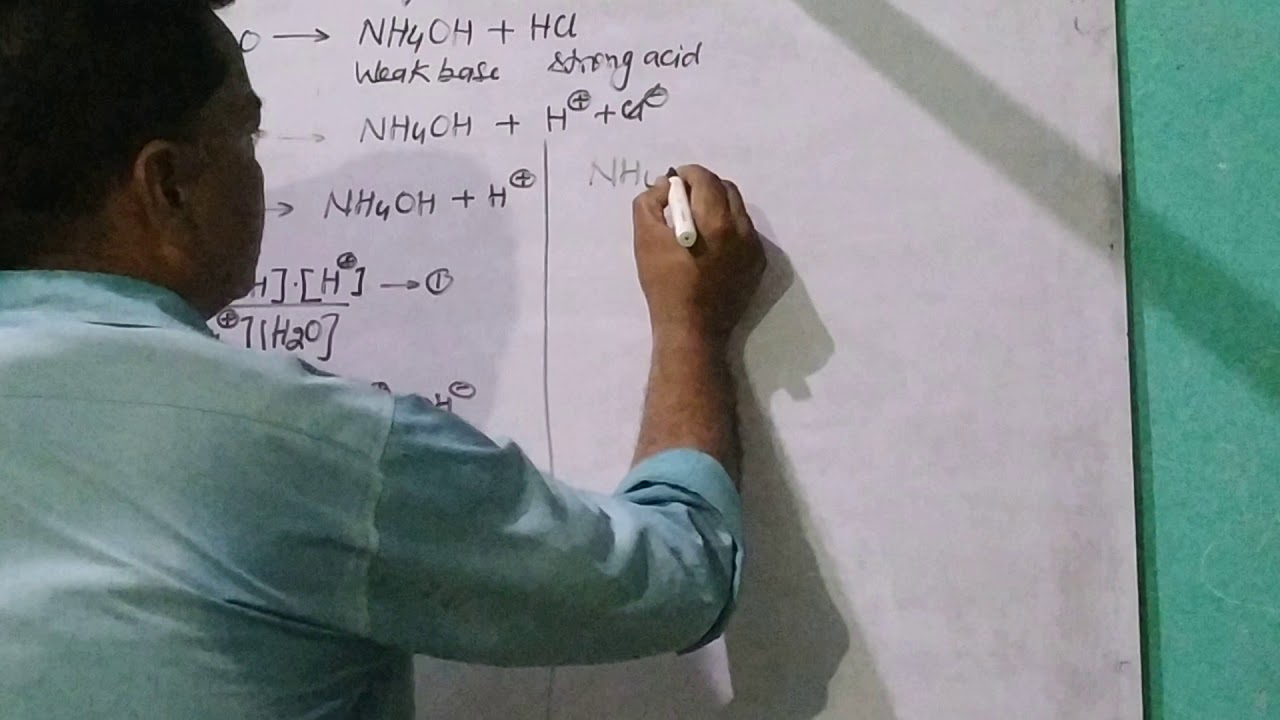 O → NH4OH + HCl
Weak base strong acid
→ NH4OH + H⊕ + Cl⊖
→ NH4OH + H⊕
H]·[H⊕] → ①
⊕][H2O]
H⊖
NH4